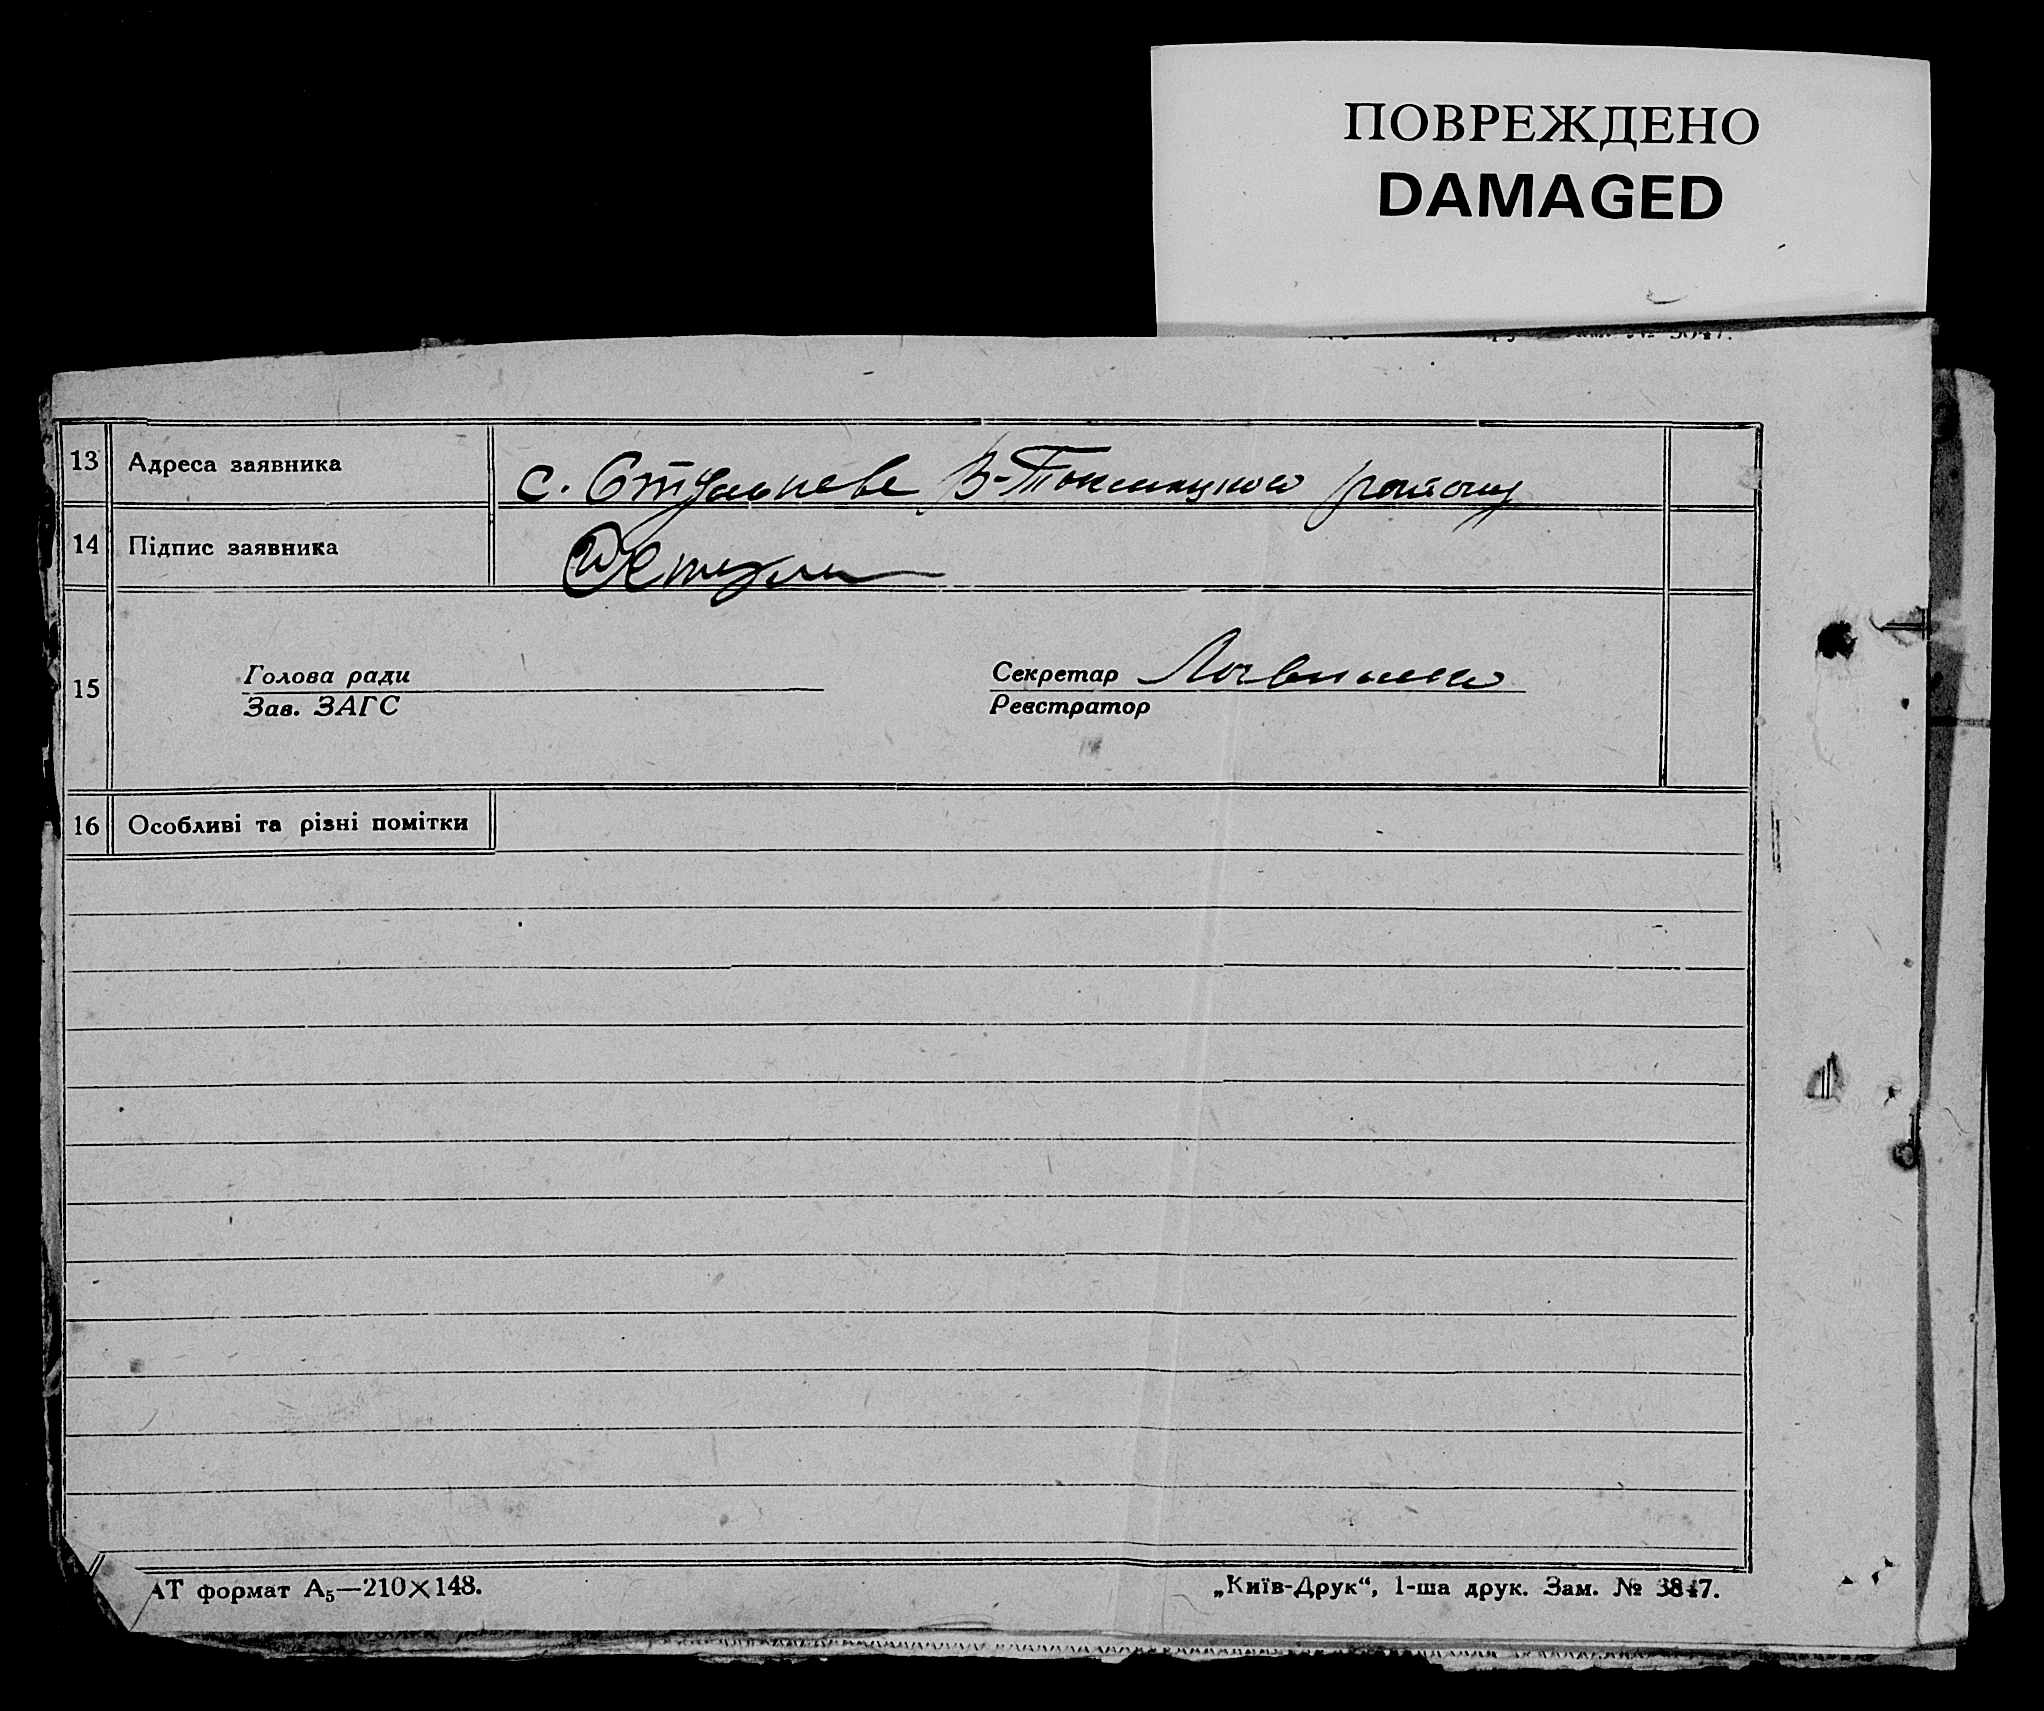 ПОВРЕЖДЕНО
DAMAGED
13 Адреса заявника с. Ступнева В-Токмацького району
14 Підпис заявника
15 Голова ради Секретар Логвиненко
Зав. ЗАГС Реєстратор
16 Особливі та різні помітки
АТ формат А₅—210×148. „Київ-Друк“, 1-ша друк. Зам. № 3847.